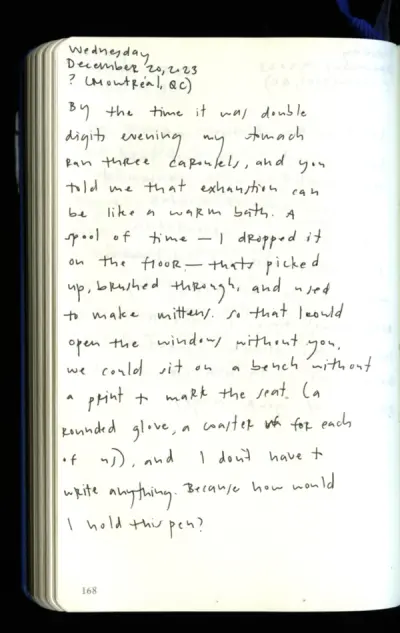 Wednesday
December 20, 2023
? (Montréal, QC)
By the time it was double
digits evening my stomach
ran three carousels, and you
told me that exhaustion can
be like a warm bath. A
spool of time — I dropped it
on the floor — thats picked
up, brushed through, and used
to make mittens. so that I could
open the windows without you,
we could sit on a bench without
a print to mark the seat. (a
rounded glove, a coaster for each
of us), and I don't have to
write anything. Because how would
I hold this pen?
168